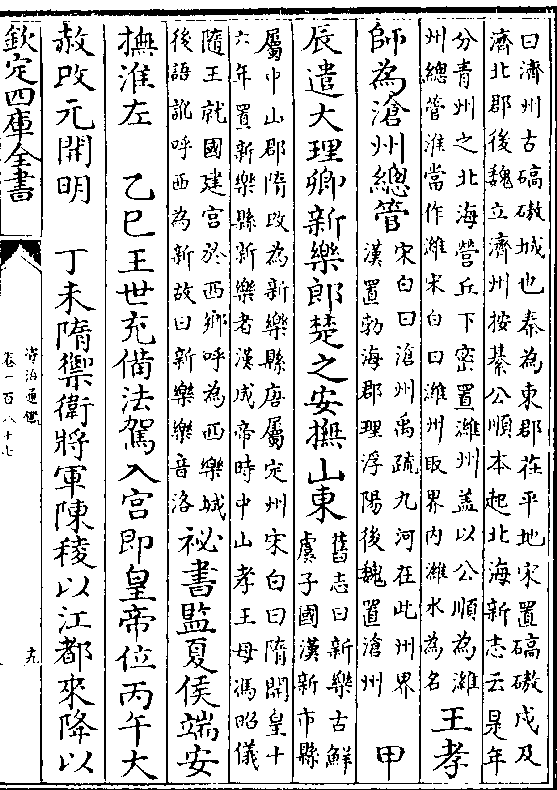 曰濟州古碻磝城也秦為東郡茌平地宋置碻磝戍及
濟北郡後魏立濟州按綦公順本起北海新志云是年
分青州之北海營丘下密置濰州盖以公順為濰
州總管淮當作濰宋白曰濰州取界内濰水為名
王孝
師為滄州總管
宋白曰滄州禹疏九河在此州界
漢置勃海郡理浮陽後魏置滄州
甲
辰遣大理卿新樂郎楚之安撫山東
舊志曰新樂古鮮
虞子國漢新市縣
屬中山郡隋改為新樂縣唐屬定州宋白曰隋開皇十
六年置新樂縣新樂者漢成帝時中山孝王母馮昭儀
隨王就國建宫於西鄉呼為西樂城
後語訛呼西為新故曰新樂樂音洛
祕書監夏侯端安
撫淮左 乙巳王世充備法駕入宫即皇帝位丙午大
赦改元開明 丁未隋禦衛將軍陳稜以江都來降以
欽定四庫全書
資治通鑑
卷一百八十七
九